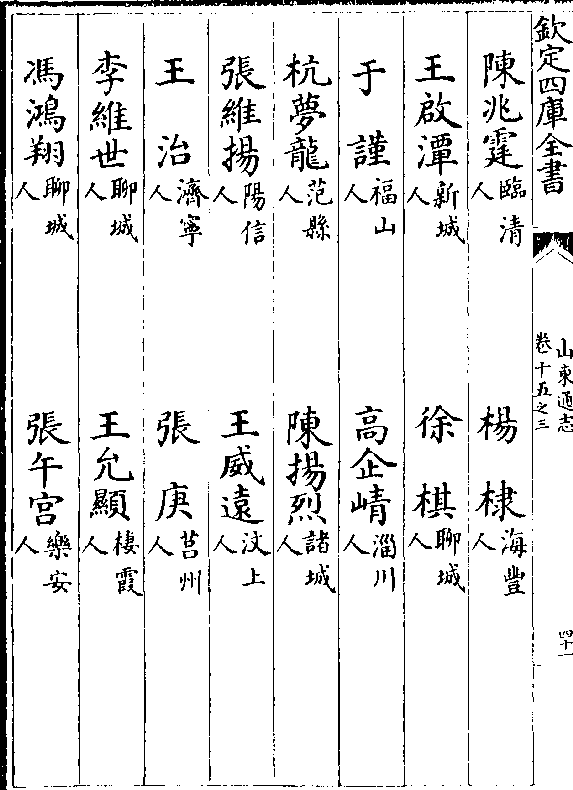 欽定四庫全書
山東通志
卷十五之三
四十一
陳兆霆臨清人
楊棣海豐人
王啟潭新城人
徐棋聊城人
于謹福山人
高企崝淄川人
杭夢龍范縣人
陳揚烈諸城人
張維揚陽信人
王威遠汶上人
王治濟寧人
張庚莒州人
李維世聊城人
王允顯棲霞人
馮鴻翔聊城人
張午宫樂安人